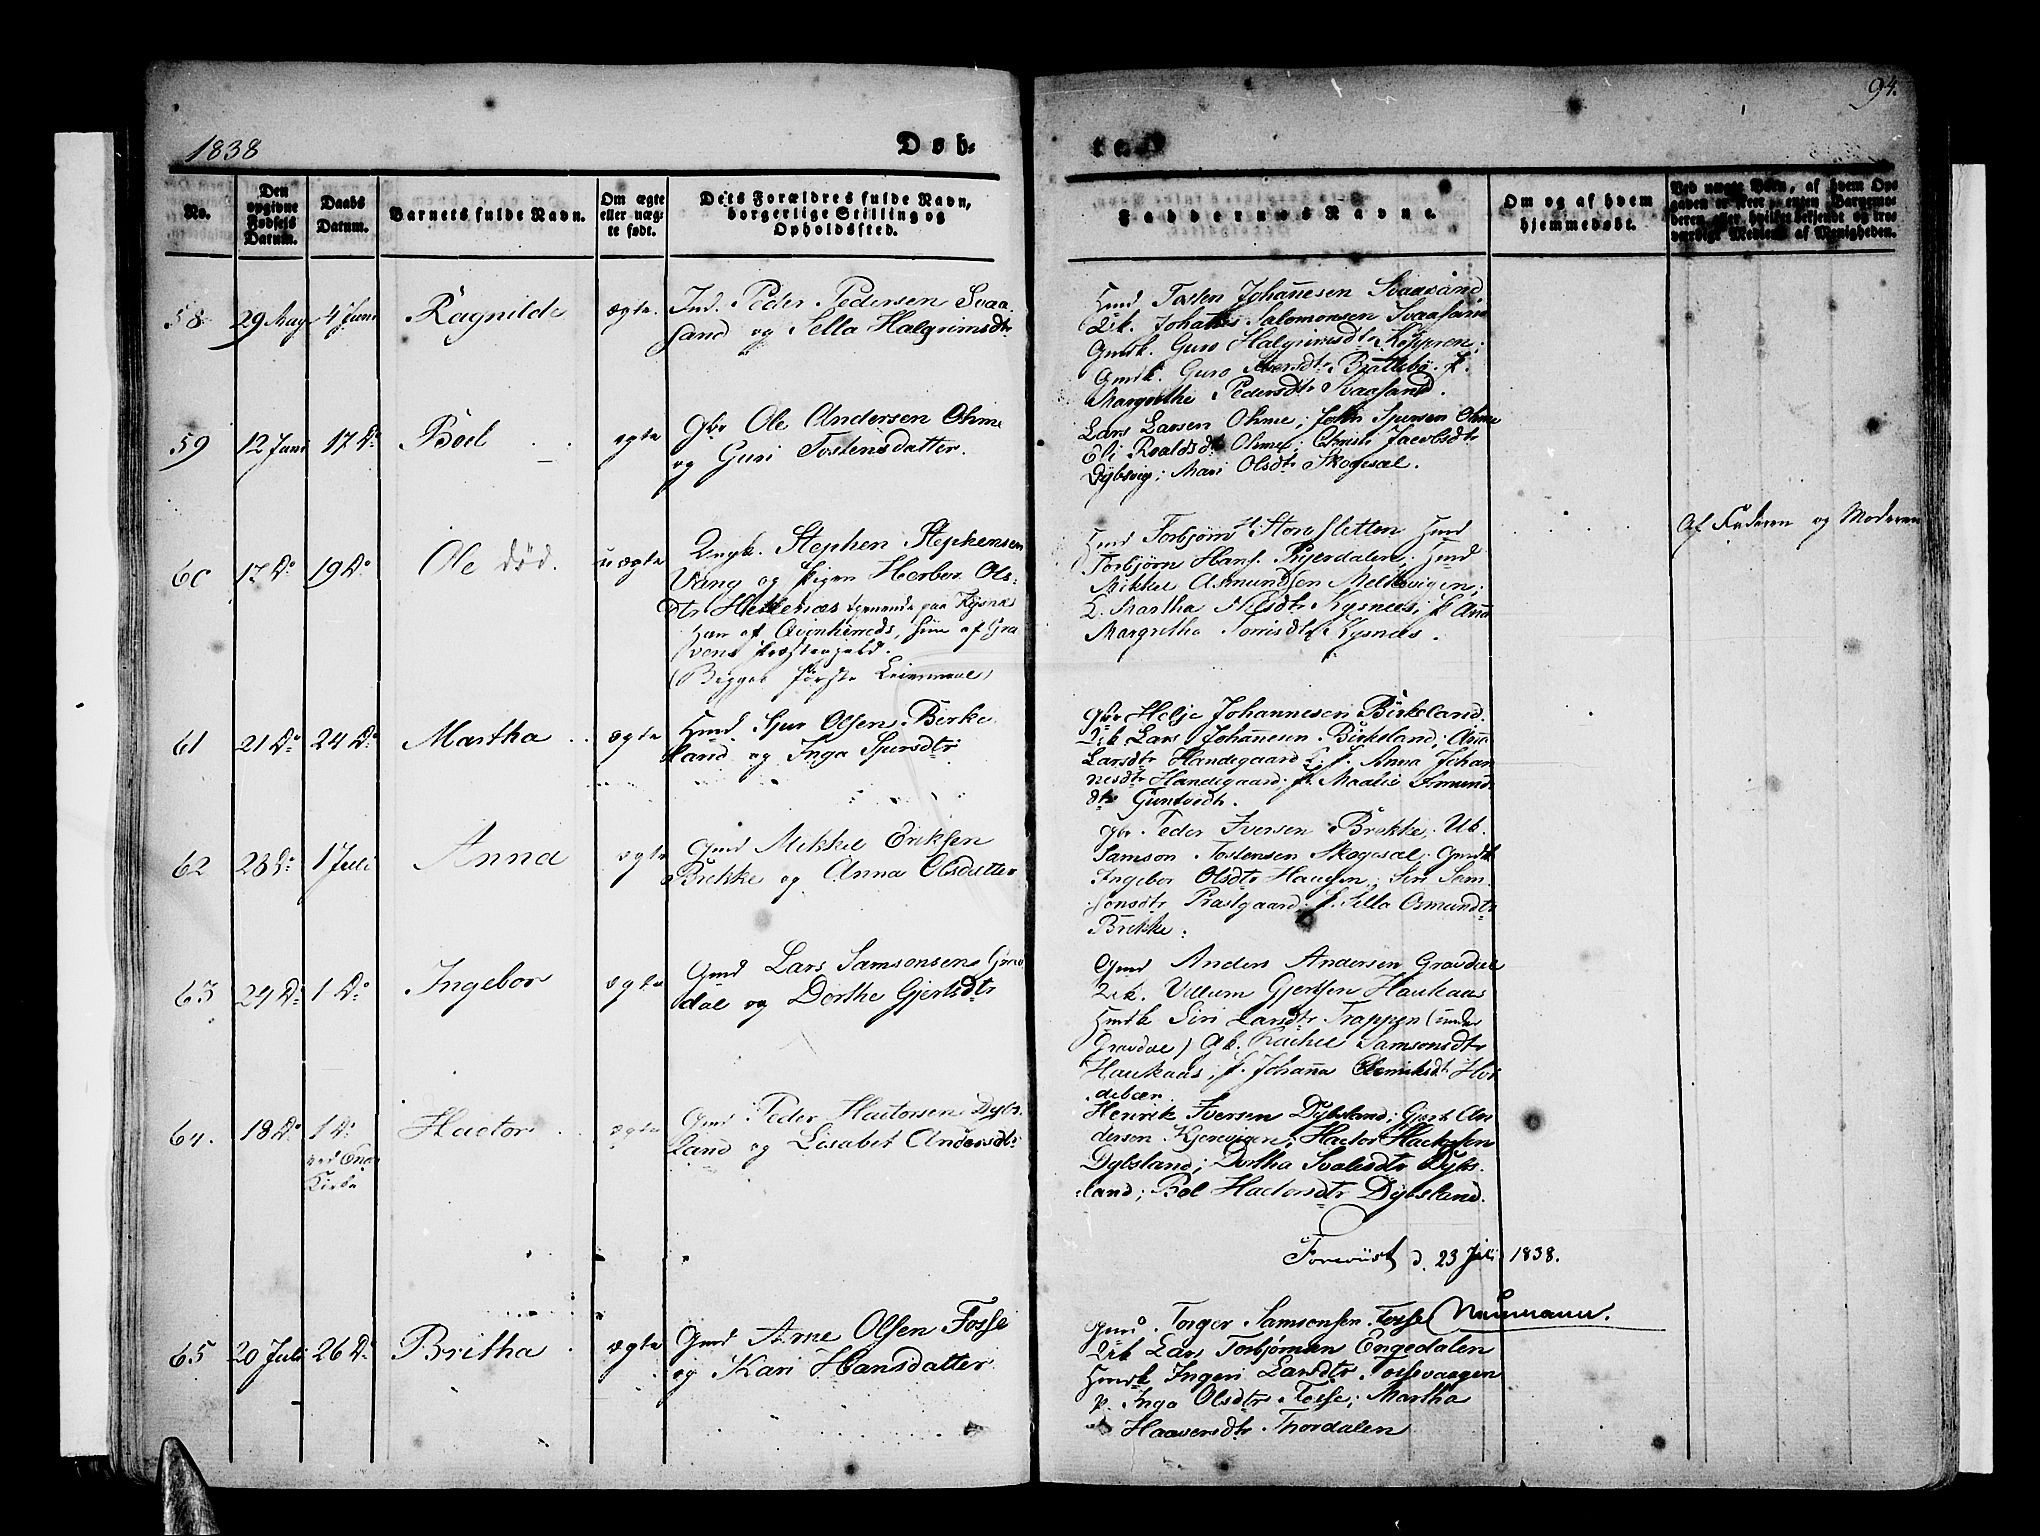 94.
1838
Døb-
te.
No.
Den opgivne Fødsels Datum.
Daabs Datum.
Barnets fulde Navn.
Om ægte eller uæg-te født.
Dets Forældres fulde Navn, borgerlige Stilling og Opholdssted.
Faddernes Navne.
Om og af hvem hjemmedøbt.
Ved uægte Børn, af hvem Op-
58
29 May
4 Juni
Ragnilde
ægte.
Ind. Peder Pedersen Svaa
sand og Sella Halgrimsdtr
Hmd Tosten Johannesen Svaasand
Johannes Salomonsen Svaasand
Gmdk. Guro Halgrimsdtr
Gmdk. Guro Brattebø. P.
Margrethe Pedersdtr Svaasand.
59
12 Juni
17 Do
Böel
ægte
Gbr Ole Andersen Ohme
og Guri Tostensdatter.
Lars Larsen Ohme; John Spersen Ohme
Eli Roaldsdtr Ohme; Christi Jacobsdtr
Dybsvig; Mari Olsdtr Skogesæl.
60
17 Do
19 Do
Ole død.
uægte
Ungk. Stephen Stephensen
Vang og Pigen Herbor Ols-
dtr Hettenæs tjenende paa Kysnæ
Han af Qvinherreds, hun af Gra
vens Præstegjeld.
(Begges første Leiermaal)
Hmd Torbjørn Storesletten Hmd
Torbjørn Hans. Hmd
Mikkel Asmundsen Melkevigen;
Martha Nilsdtr Kysnes; P Anna
Margretha Kysnes.
Af Faderen og Moderen
61
21 Do
24 Do
Martha
ægte
Hmd Sjur Olsen Birke
land og Inga Spersdtr
Gbr Helje Johannesen Birkeland.
Lars Johannesen Birkeland; Anna
Larsdtr Handegaard P. Anna Johan
nesdtr Handegaard; P. Maalie Asmund
dtr Guntvedt.
62
28 Do
1 Juli
Anna
ægte
Gmd Mikkel Eriksen
Brekke og Anna Olsdatter
Gbr Peder Iversen Brekke; Ub.
Samson Tostensen Skogesæl; Gmdk
Ingebor Olsdtr Haugen; Siri Sam
sonsdtr Præstgaard; P. Sella Osmundtr
Brekke.
63
24 Do
1 Do
Ingebor
ægte
Gmd Lars Samsonsen Grav
dal og Dorthe Gjertsdtr
Gmd Anders Andersen Gravdal
Villum Gjertsen Haukaas
Hmdk Siri Larsdtr Trappen (under
Gravdal) Rachel Samsonsdtr
Haukaas; P. Johanna Henriksdt Hor
debæn.
64.
18 Do
1 Do
ved Enæs
Kirke
Hactor
ægte
Gmd Peder Hactorsen Dybs
land og Lisabet Andersdtr
Henrik Iversen Dybsland; Gjert An
dersen Kjerevigen; Hactor Hactorsen
Dybsland; Dortha Dybs
land; Böl Hactorsdtr Dybsland.
Foreviist d. 23 Juli 1838.
Neumann.
65
20 Juli
26 Do
Britha
ægte
Gmd Arne Olsen Fosse
og Kari Hansdatter
Gmd Torger Samsonsen Fosse
Lars Torbjørnsen Engedalen
Hmdk Ingeri Larsdtr Fossevaagen
P. Inga Olsdtr Fosse; Martha
Haaversdtr Thordalen